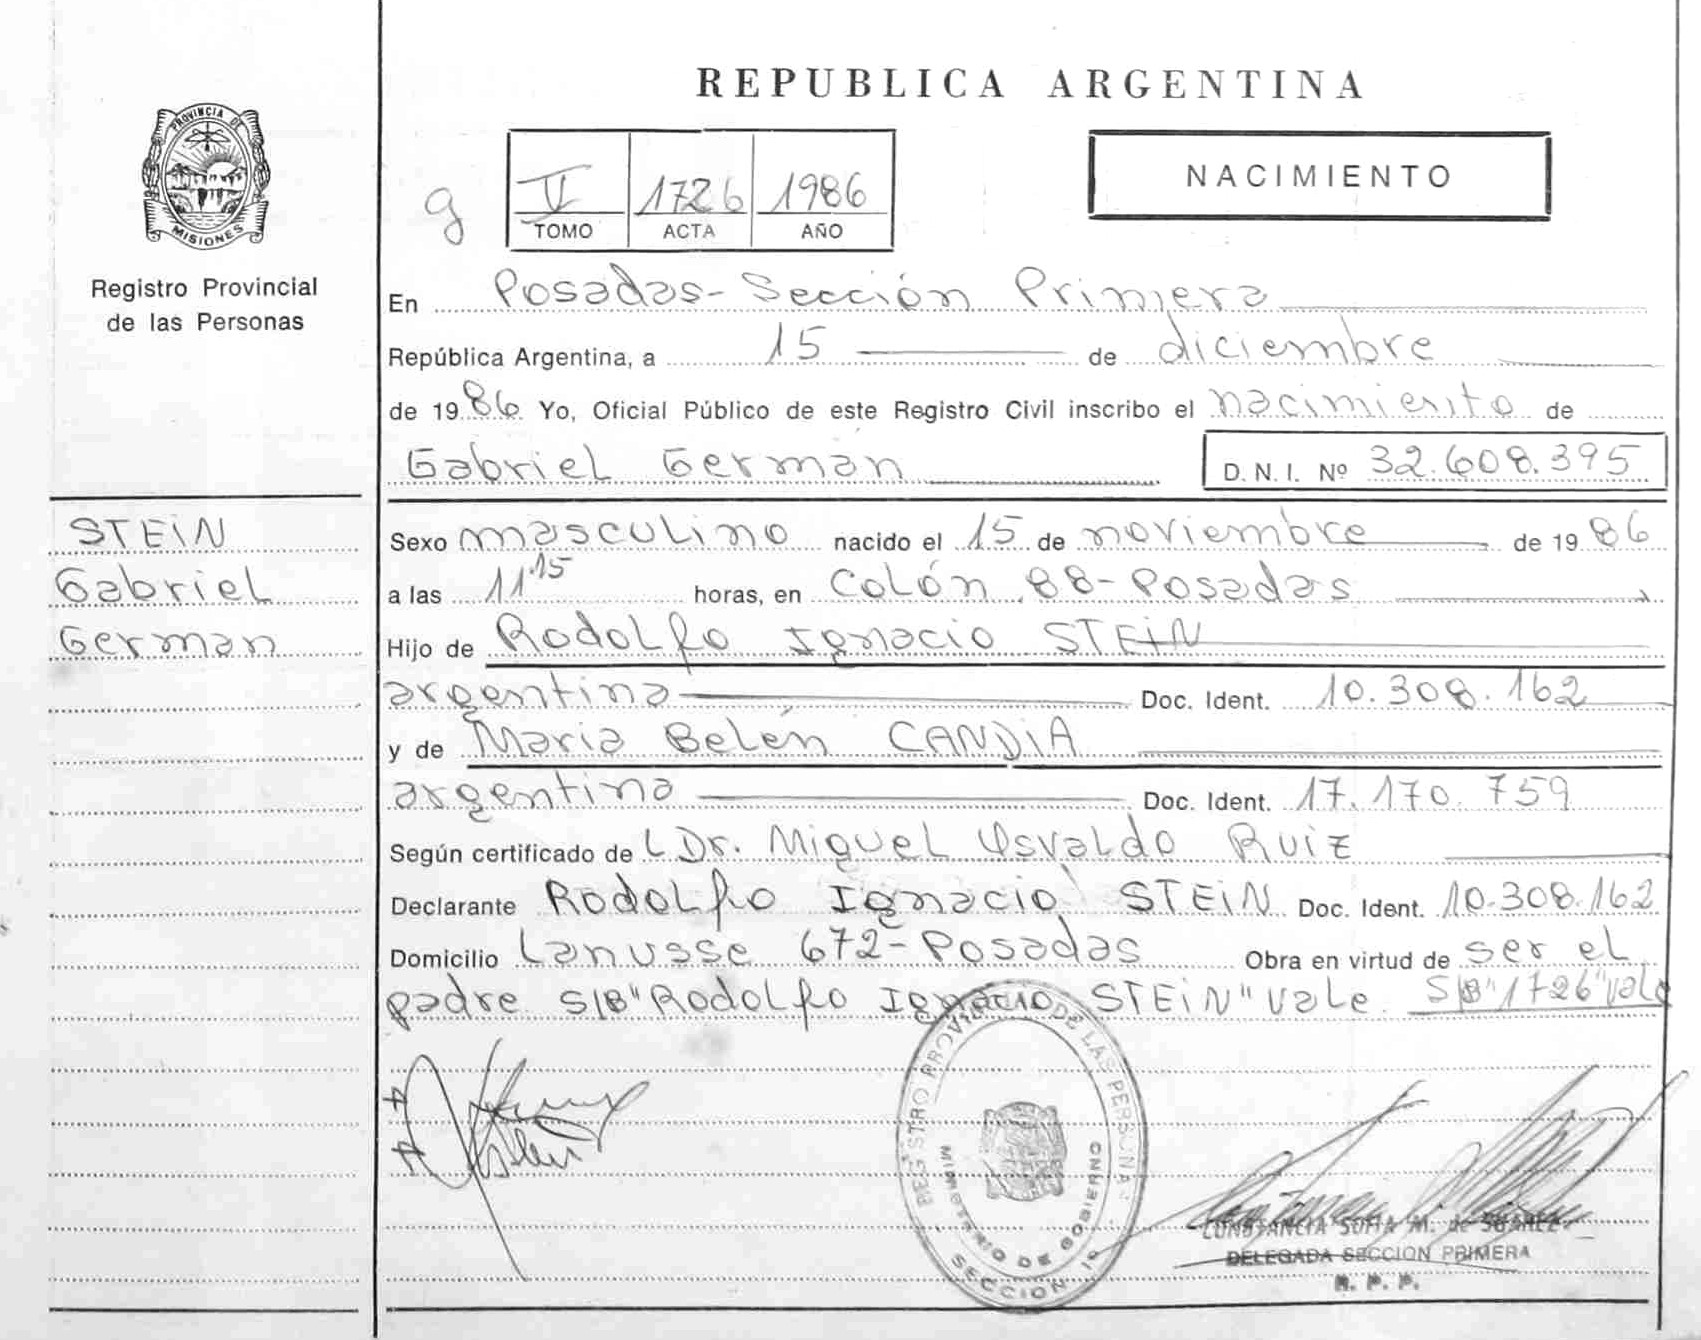 REPUBLICA ARGENTINA
PROVINCIA DE
MISIONES
Registro Provincial
de las Personas
g
V 1726 1986
TOMO ACTA AÑO
NACIMIENTO
En Posadas - Sección Primera
República Argentina, a 15 de diciembre
de 1986 Yo, Oficial Público de este Registro Civil inscribo el nacimiento de
Gabriel Germán D. N. I. Nº 32.608.395
STEIN
Gabriel
Germán
Sexo masculino nacido el 15 de noviembre de 1986
a las 11.15 horas, en Colón 88 - Posadas
Hijo de Rodolfo Ignacio STEIN
argentina Doc. Ident. 10.308.162
y de Maria Belén CANDIA
argentina Doc. Ident. 17.170.759
Según certificado de L Dr. Miguel Osvaldo Ruiz
Declarante Rodolfo Ignacio STEIN Doc. Ident. 10.308.162
Domicilio Lanusse 672 - Posadas Obra en virtud de ser el
padre S/B "Rodolfo Ignacio STEIN" vale S/B "1726" vale
REGISTRO PROVINCIAL DE LAS PERSONAS
MINISTERIO DE GOBIERNO
SECCION 1º
CONSTANCIA SOFIA M. de SUAREZ
DELEGADA SECCION PRIMERA
R. P. P.